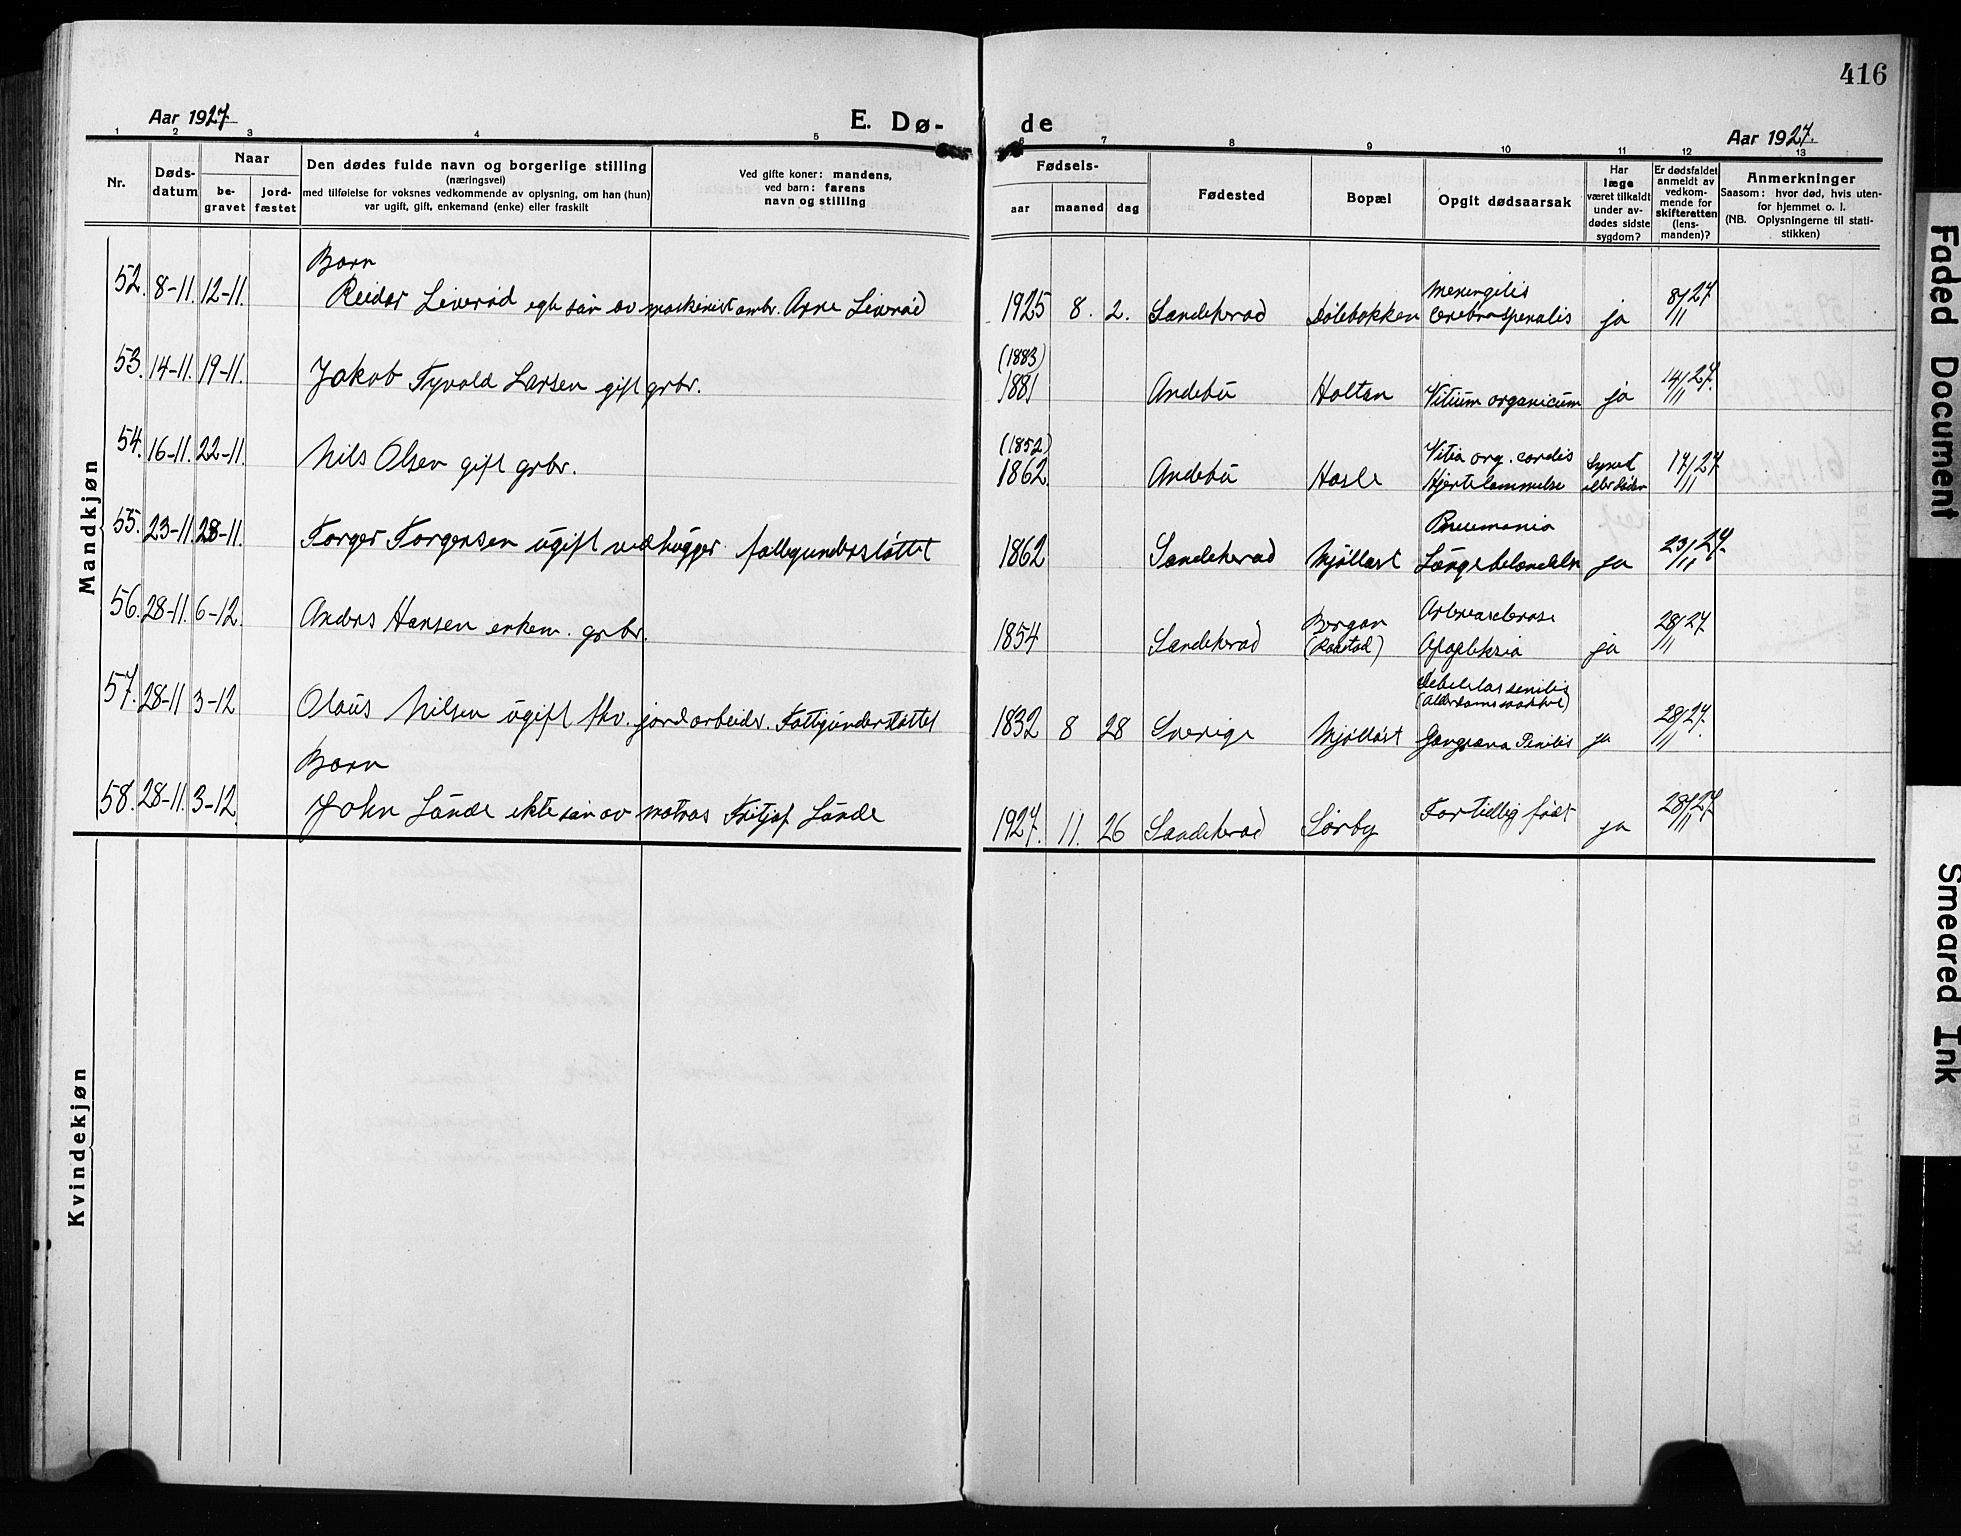 416
Aar 1927.
E. Dø-
de
Aar 1927.
1 2 3 4 5 6 7 8 9 10 11 12 13
Nr.
Døds-
datum
Naar
be-
gravet
jord-
fæstet
Den dødes fulde navn og borgerlige stilling
(næringsvei)
med tilføielse for voksnes vedkommende av oplysning, om han (hun)
var ugift, gift, enkemand (enke) eller fraskilt
Ved gifte koner: mandens,
ved barn: farens
navn og stilling
Fødsels-
aar maaned dag
Fødested
Bopæl
Opgit dødsaarsak
Har
læge
været tilkaldt
under av-
dødes sidste
sygdom?
Er dødsfaldet
anmeldt av
vedkom-
mende for
skifteretten
(lens-
manden)?
Anmerkninger
Saasom: hvor død, hvis uten-
for hjemmet o. l.
(NB. Oplysningerne til stati-
stikken)
Mandkjøn
Barn
52. 8-11 12-11. Reidar Liverød egte søn av maskinist ombr. Arne Liverød 1925 8. 2. Sandeherad Dølebakken Meningitis
Cerebrospinalis ja 8/11 27
53. 14-11. 19-11. Jakob Tyvold Larsen gift grbr. (1883)
1881 Andebu Holtan Vitium organicum ja 14/11 27.
54. 16-11. 22-11. Nils Olsen gift grbr. (1852)
1862 Andebu Hasle Vitia org. cordis
Hjertelammelse Synet
efter døden 17/11 27
55. 23-11. 28-11. Torger Torgersen ugift vedhugger. fattigunderstøttet 1862 Sandeherad Mjølløst Pneumonia
Lungebetændelse ja 23/11 27.
56. 28-11. 6-12. Anders Hansen enkem. grbr. 1854 Sandeherad Bergan
(Ramstad) Arteriosclerose
Apopleksia ja 28/11 27.
57. 28-11 3-12 Olaus Nilsen ugift fhv. jordarbeider. Fattigunderstøttet 1832 8 28 Sverige Mjølløst Debilitas senilis
(Alderdomssvakhet)
Gangræna Senilis ja 28/11 27.
Barn
58. 28-11. 3-12. John Lunde ekte søn av matros Fritjof Lunde 1927. 11. 26 Sandeherad Sørby For tidlig født ja 28/11 27.
Kvindekjøn
Faded Document
Smeared Ink